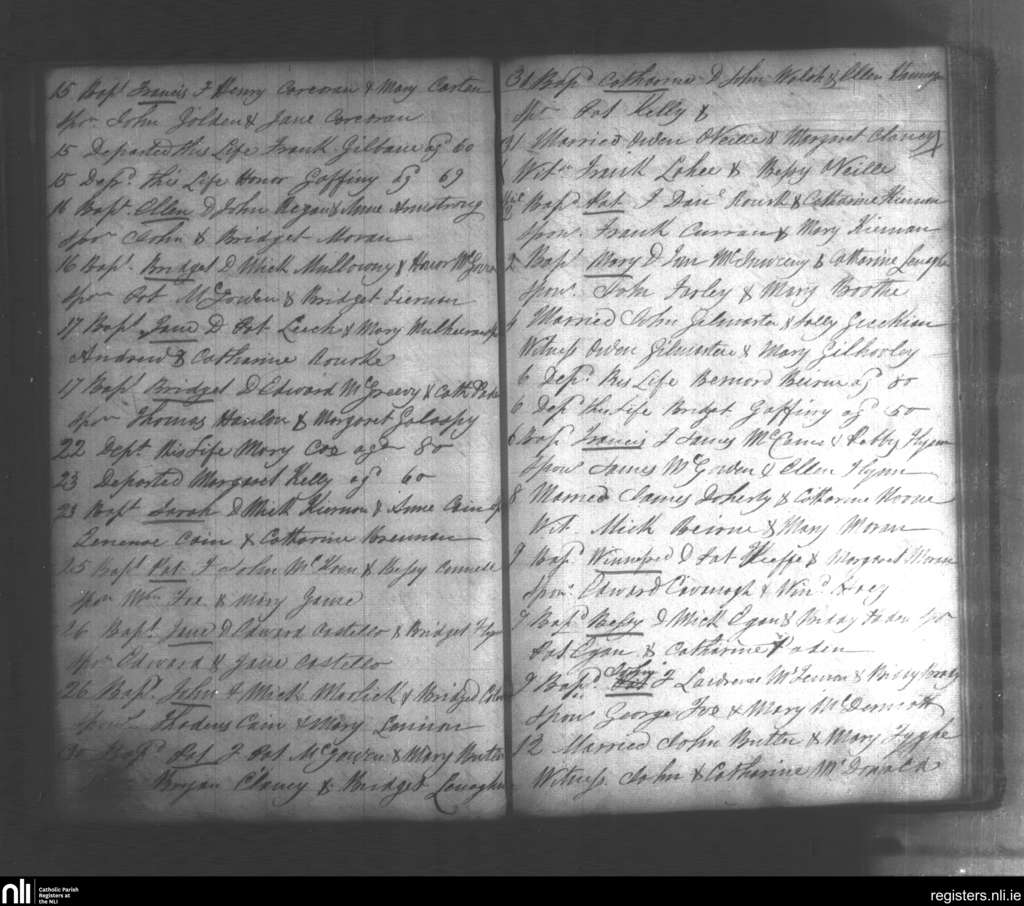 15 Bapt Francis F Henry Corcoran & Mary Carlan
Spor John Golden & Jane Corcoran
15 Departed this Life Frank Gilbane ag 60
15 Depd this Life Honor Gaffiny 69
16 Bapt Ellen D John Regan & Anne Armstrong
Spor John & Bridget Moran
16 Bapt Bridget D Mick Mullowny & Honor
Spor Pat McGowen & Bridget Tiernan
17 Bapt Jane D Pat Leech & Mary
Andrew & Catharine Rourke
17 Bapt Bridget D Edward McGreevy & Cath
Spor Thomas Hanlon & Margaret
22 Dept this Life Mary Cox age 80
23 Departed Margaret Kelly ag 60
23 Bapt Sarah D Mick Kiernan & Anne Cain
Terence Cain & Catharine Brennan
25 Bapt Pat F John McKeen & Bessy
Spor Wm Fox & Mary
26 Bapt Jane D Edward Costello & Bridget
Spor Edward & Jane Costello
26 Bapt John F Mick & Bridged
Sponr Thadeus Cain & Mary Lannion
30 Bapd Pat F Pat McGowen & Mary Butler
Bryan Clancy & Bridget
31 Bapd Catharine D John Walsh & Ellen
Spr Pat Kelly &
31 Married Owen ONeille & Margret Clancy
Wits Frank & Bessy ONeille
Bapd Pat F Danl Rourk & Catharine Kiernan
Sponr Frank Curran & Mary Kiernan
2 Bapt Mary D & Catharine
Sponr John Farley & Mary Boothe
4 Married John Gilmartin & Sally
Witness Owen Gilmartin & Mary Gilhooley
6 Depd this Life Bernard Beirne ag 80
6 Depd this Life Bridget Gaffiny ag 50
6 Bapd Francis F James & Flynn
Sponr James McGowen & Ellen Flynn
8 Married James Doherty & Catharine
Wit Mick Beirne & Mary Moran
9 Bapd Winnefred D Pat Keaffe & Margaret Moran
Sponr Edward Cavanagh & Wind
9 Bapd Bessy D Mick Egan & Paden Spr
Pat Egan & Catharine Paden
9 Bapd John F Lawrence & Brady
Sponr George Fox & Mary McDermott
12 Married John Butler & Mary Tyghe
Witness John & Catharine McDonald
nli Catholic Parish
Registers at
the NLI
registers.nli.ie